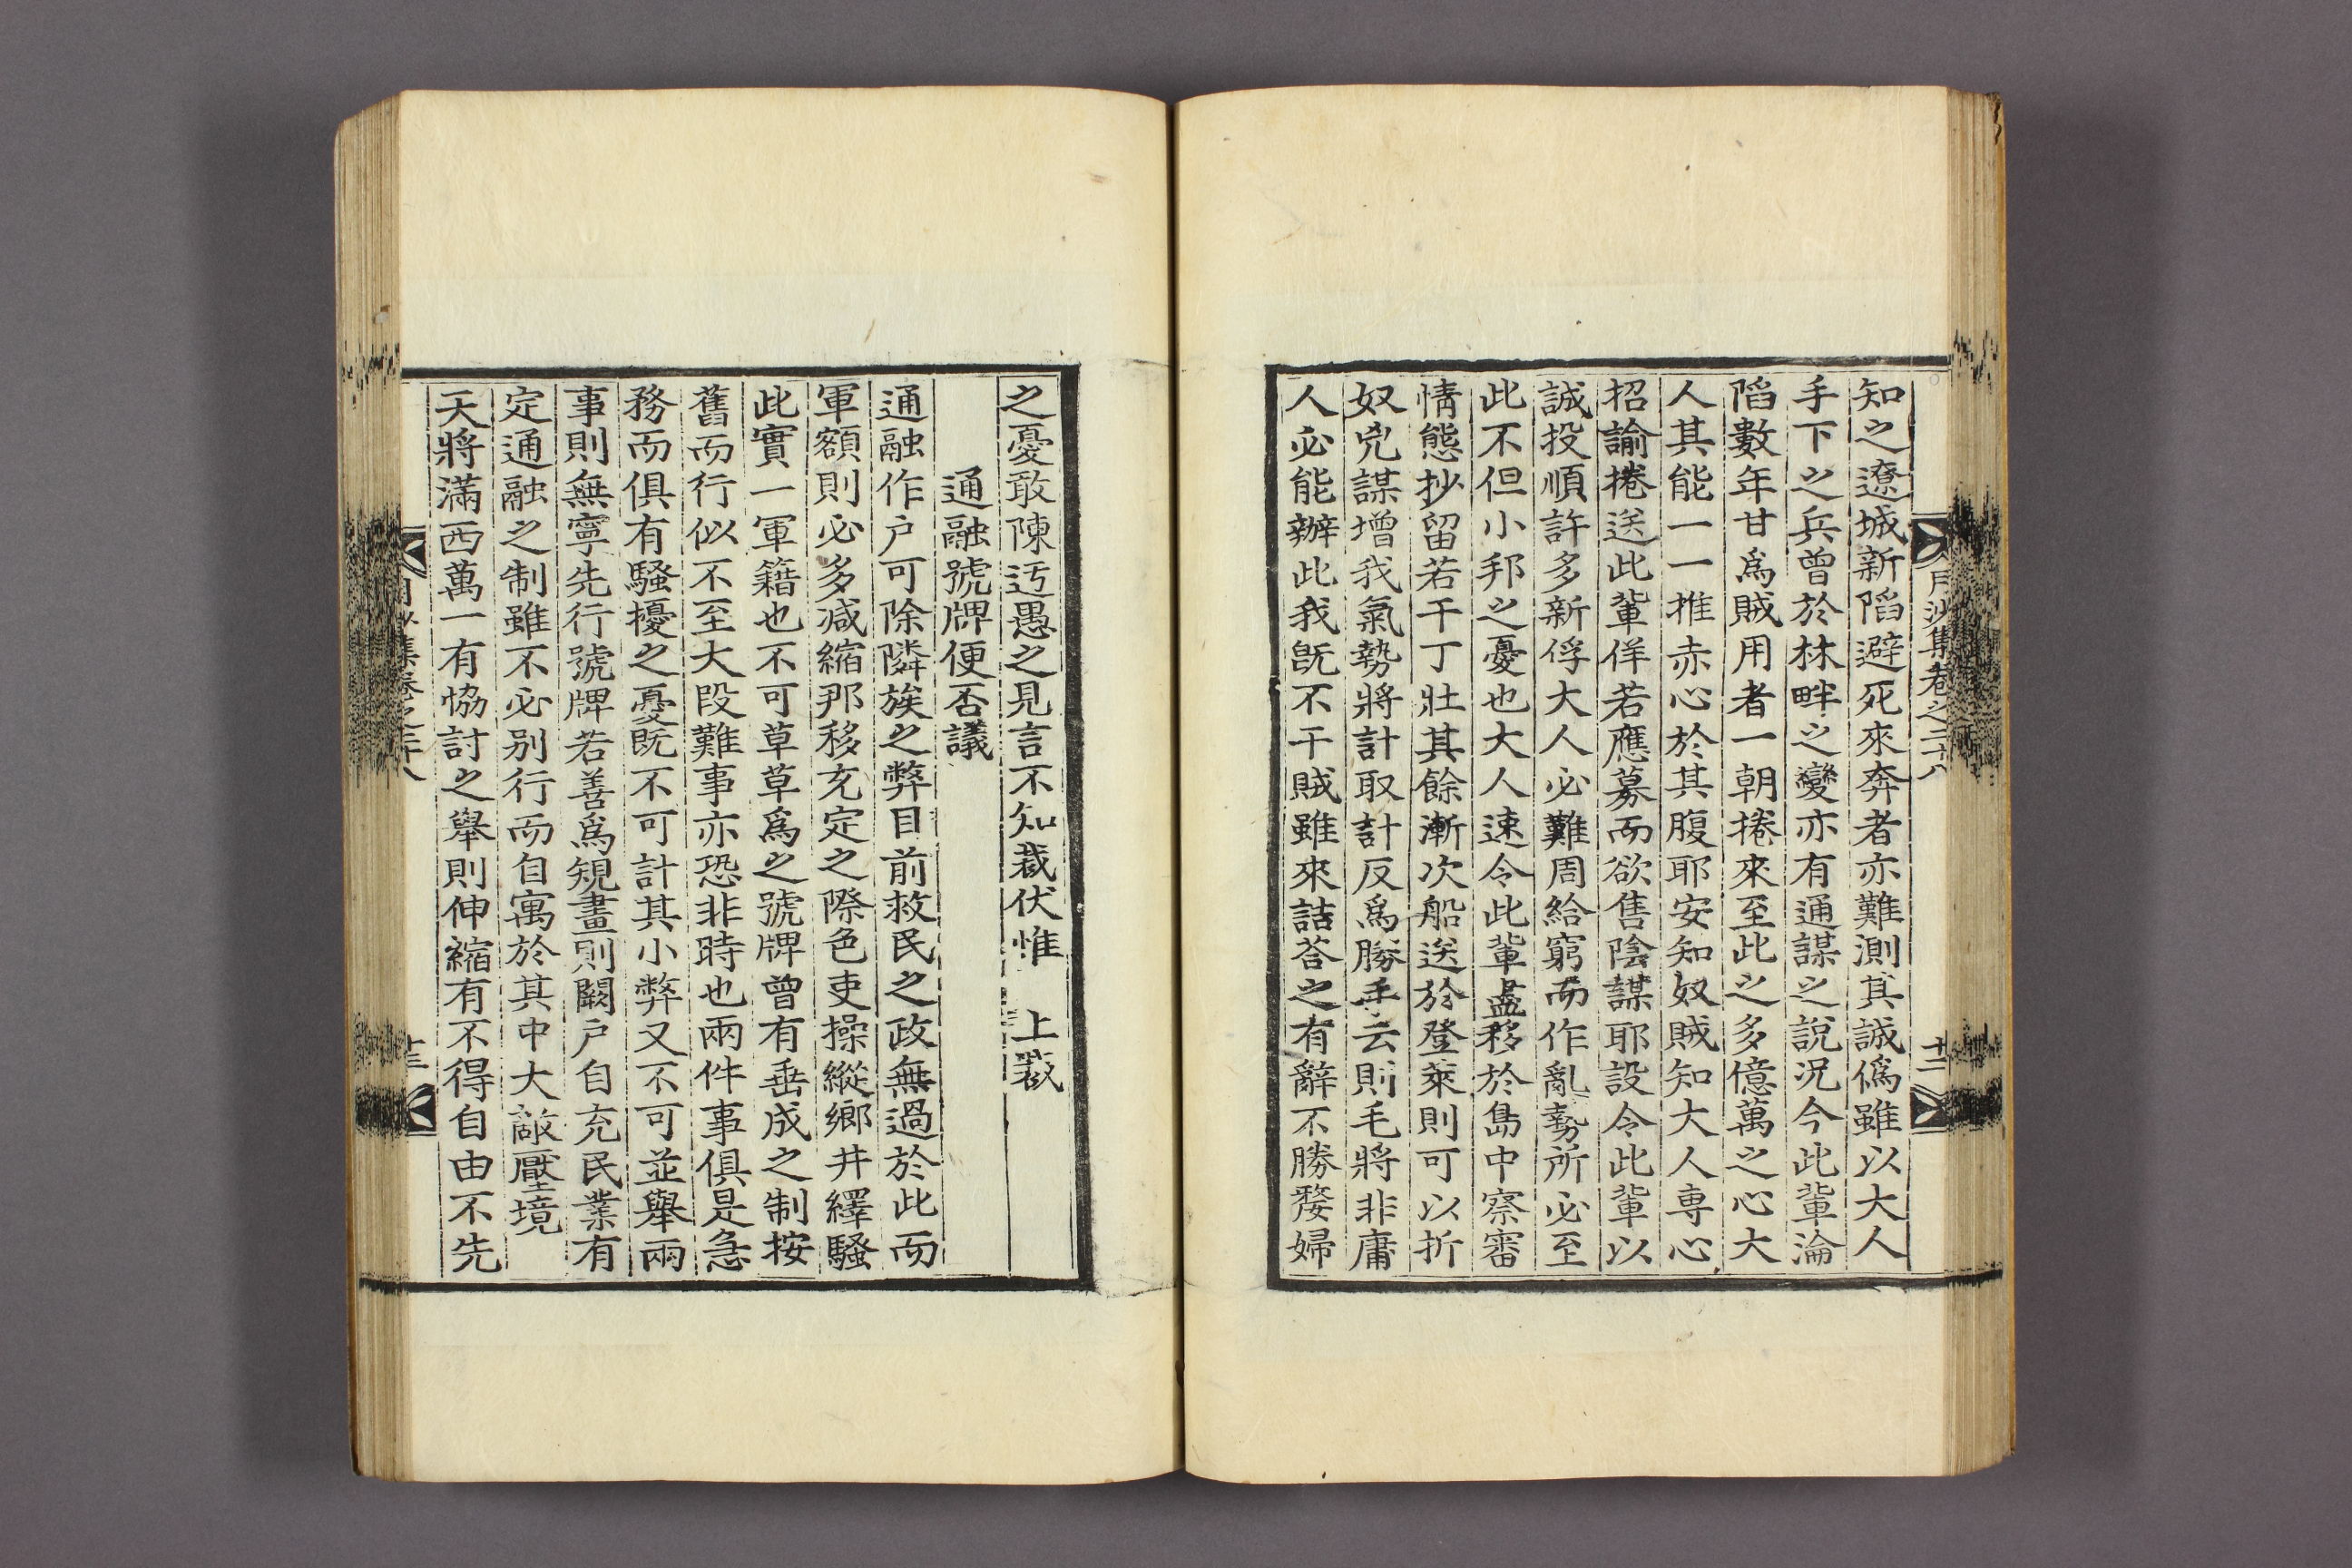 月沙集卷之三十八
十二
知之遼城新陷避死來奔者亦難測其誠僞雖以大人
手下之兵曾於林畔之變亦有通謀之說况今此輩淪
陷數年甘爲賊用者一朝捲來至此之多億萬之心大
人其能一一推赤心於其腹耶安知奴賊知大人專心
招諭捲送此輩佯若應募而欲售陰謀耶設令此輩以
誠投順許多新俘大人必難周給窮而作亂勢所必至
此不但小邦之憂也大人速令此輩盡移於島中察審
情態抄留若干丁壯其餘漸次船送於登萊則可以折
奴兇謀增我氣勢將計取計反爲勝手云則毛將非庸
人必能辦此我旣不干賊雖來詰荅之有辭不勝嫠婦
之憂敢陳迃愚之見言不知裁伏惟 上裁
通融號牌便否議
通融作戶可除隣族之弊目前救民之政無過於此而
軍額則必多減縮那移充定之際色吏操縱鄉井繹騷
此實一軍籍也不可草草爲之號牌曾有垂成之制按
舊而行似不至大段難事亦恐非時也兩件事俱是急
務而俱有騷擾之憂旣不可計其小弊又不可並舉兩
事則無寧先行號牌若善爲䂓畫則闕戶自充民業有
定通融之制雖不必別行而自寓於其中大敵壓境
天將滿西萬一有恊討之舉則伸縮有不得自由不先
集卷之三十八
十三